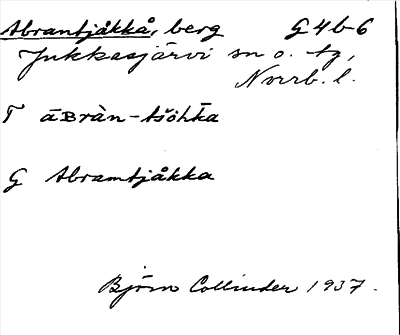 Abrantjåkkå, berg G4b-6
Jukkasjärvi sn o. tg,
Norrb. l.
T āʙràn-tšŏhʽka
G Abramtjåkka
Björn Collinder 1937.